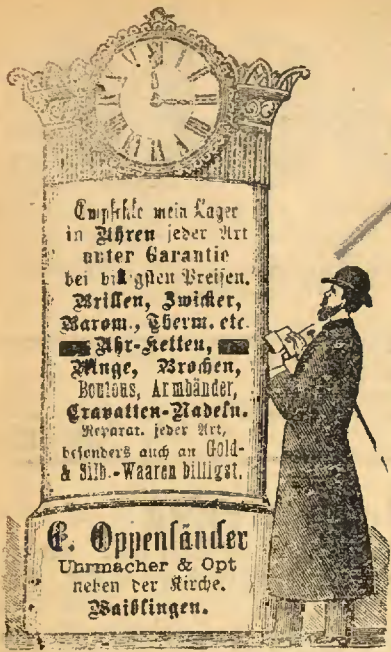 Empfehle mein Lager
in Uhren jeder Art
unter Garantie
bei billigsten Preisen.
Brillen, Zwicker,
Barom., Therm. etc.
Uhr-Ketten,
Ringe, Brochen,
Boutons, Armbänder,
Cravatten-Nadeln.
Reparat. jeder Art,
besonders auch an Gold-
& Silb.-Waaren billigst.
C. Oppenländer
Uhrmacher & Opt
neben der Kirche.
Waiblingen.